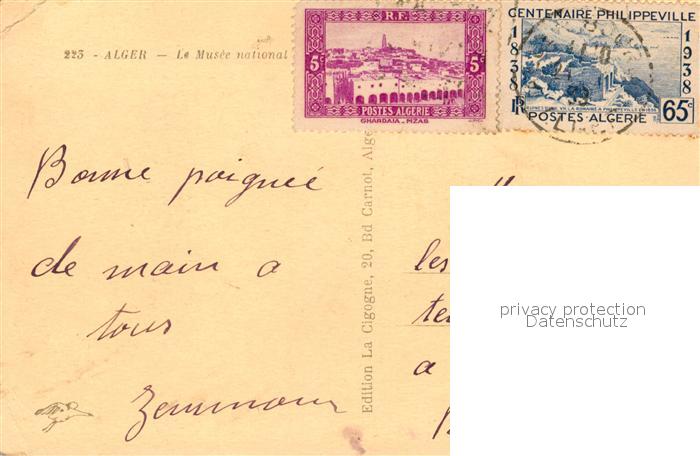 223 - ALGER - Le Musée national
R.F.
5c 5c
POSTES ALGERIE
GHARDAIA - MZAB
CENTENAIRE PHILIPPEVILLE
1838 1938
RF 65c
POSTES ALGERIE
Bonne poignée
de main a
tous
Edition La Cigogne, 20, Bd Carnot, Alge
les
te
a
privacy protection
Datenschutz